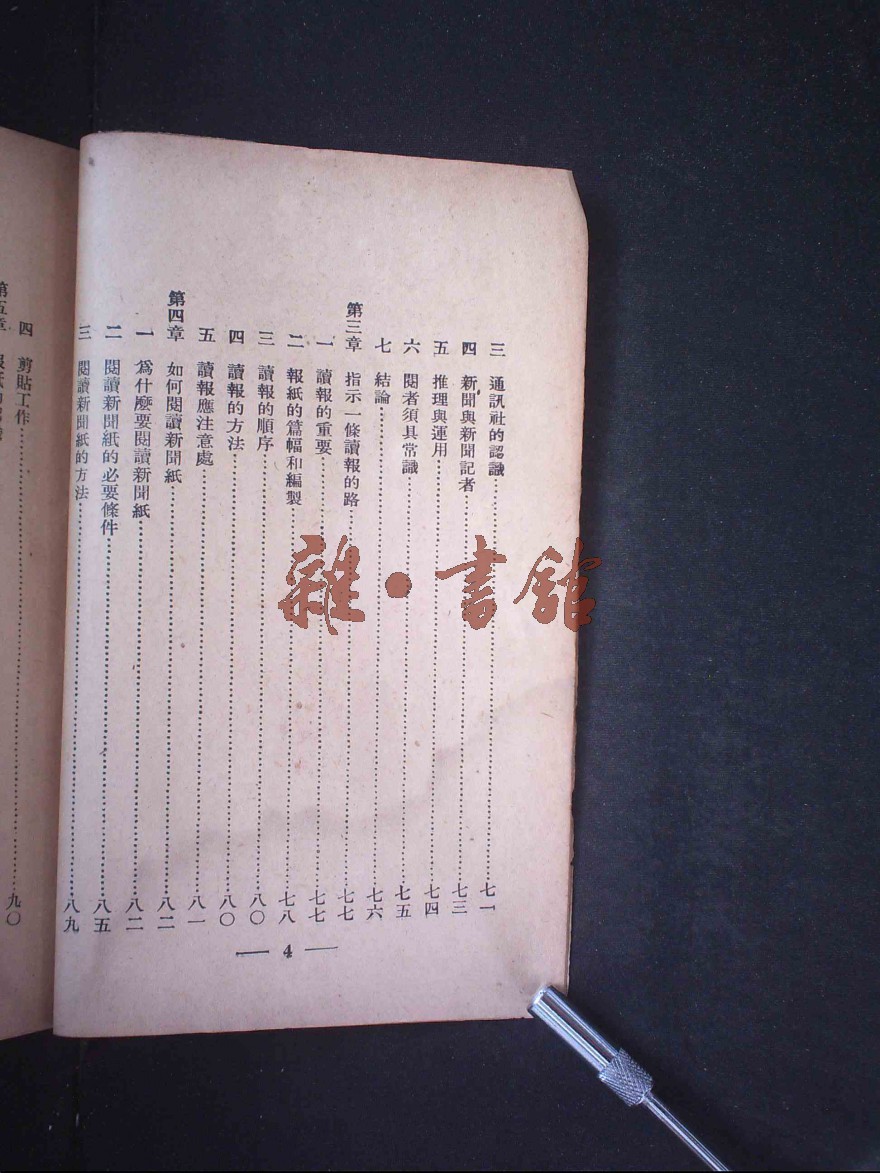 三 通訊社的認識……七一
四 新聞與新聞記者……七三
五 推理與運用……七四
六 閱者須具常識……七五
七 結論……七六
第三章 指示一條讀報的路……七七
一 讀報的重要……七七
二 報紙的篇幅和編製……七八
三 讀報的順序……八〇
四 讀報的方法……八〇
五 讀報應注意處……八一
第四章 如何閱讀新聞紙……八二
一 爲什麼要閱讀新聞紙……八二
二 閱讀新聞紙的必要條件……八五
三 閱讀新聞紙的方法……八九
— 4 —
四 剪貼工作……九〇
第五章
雜·書館